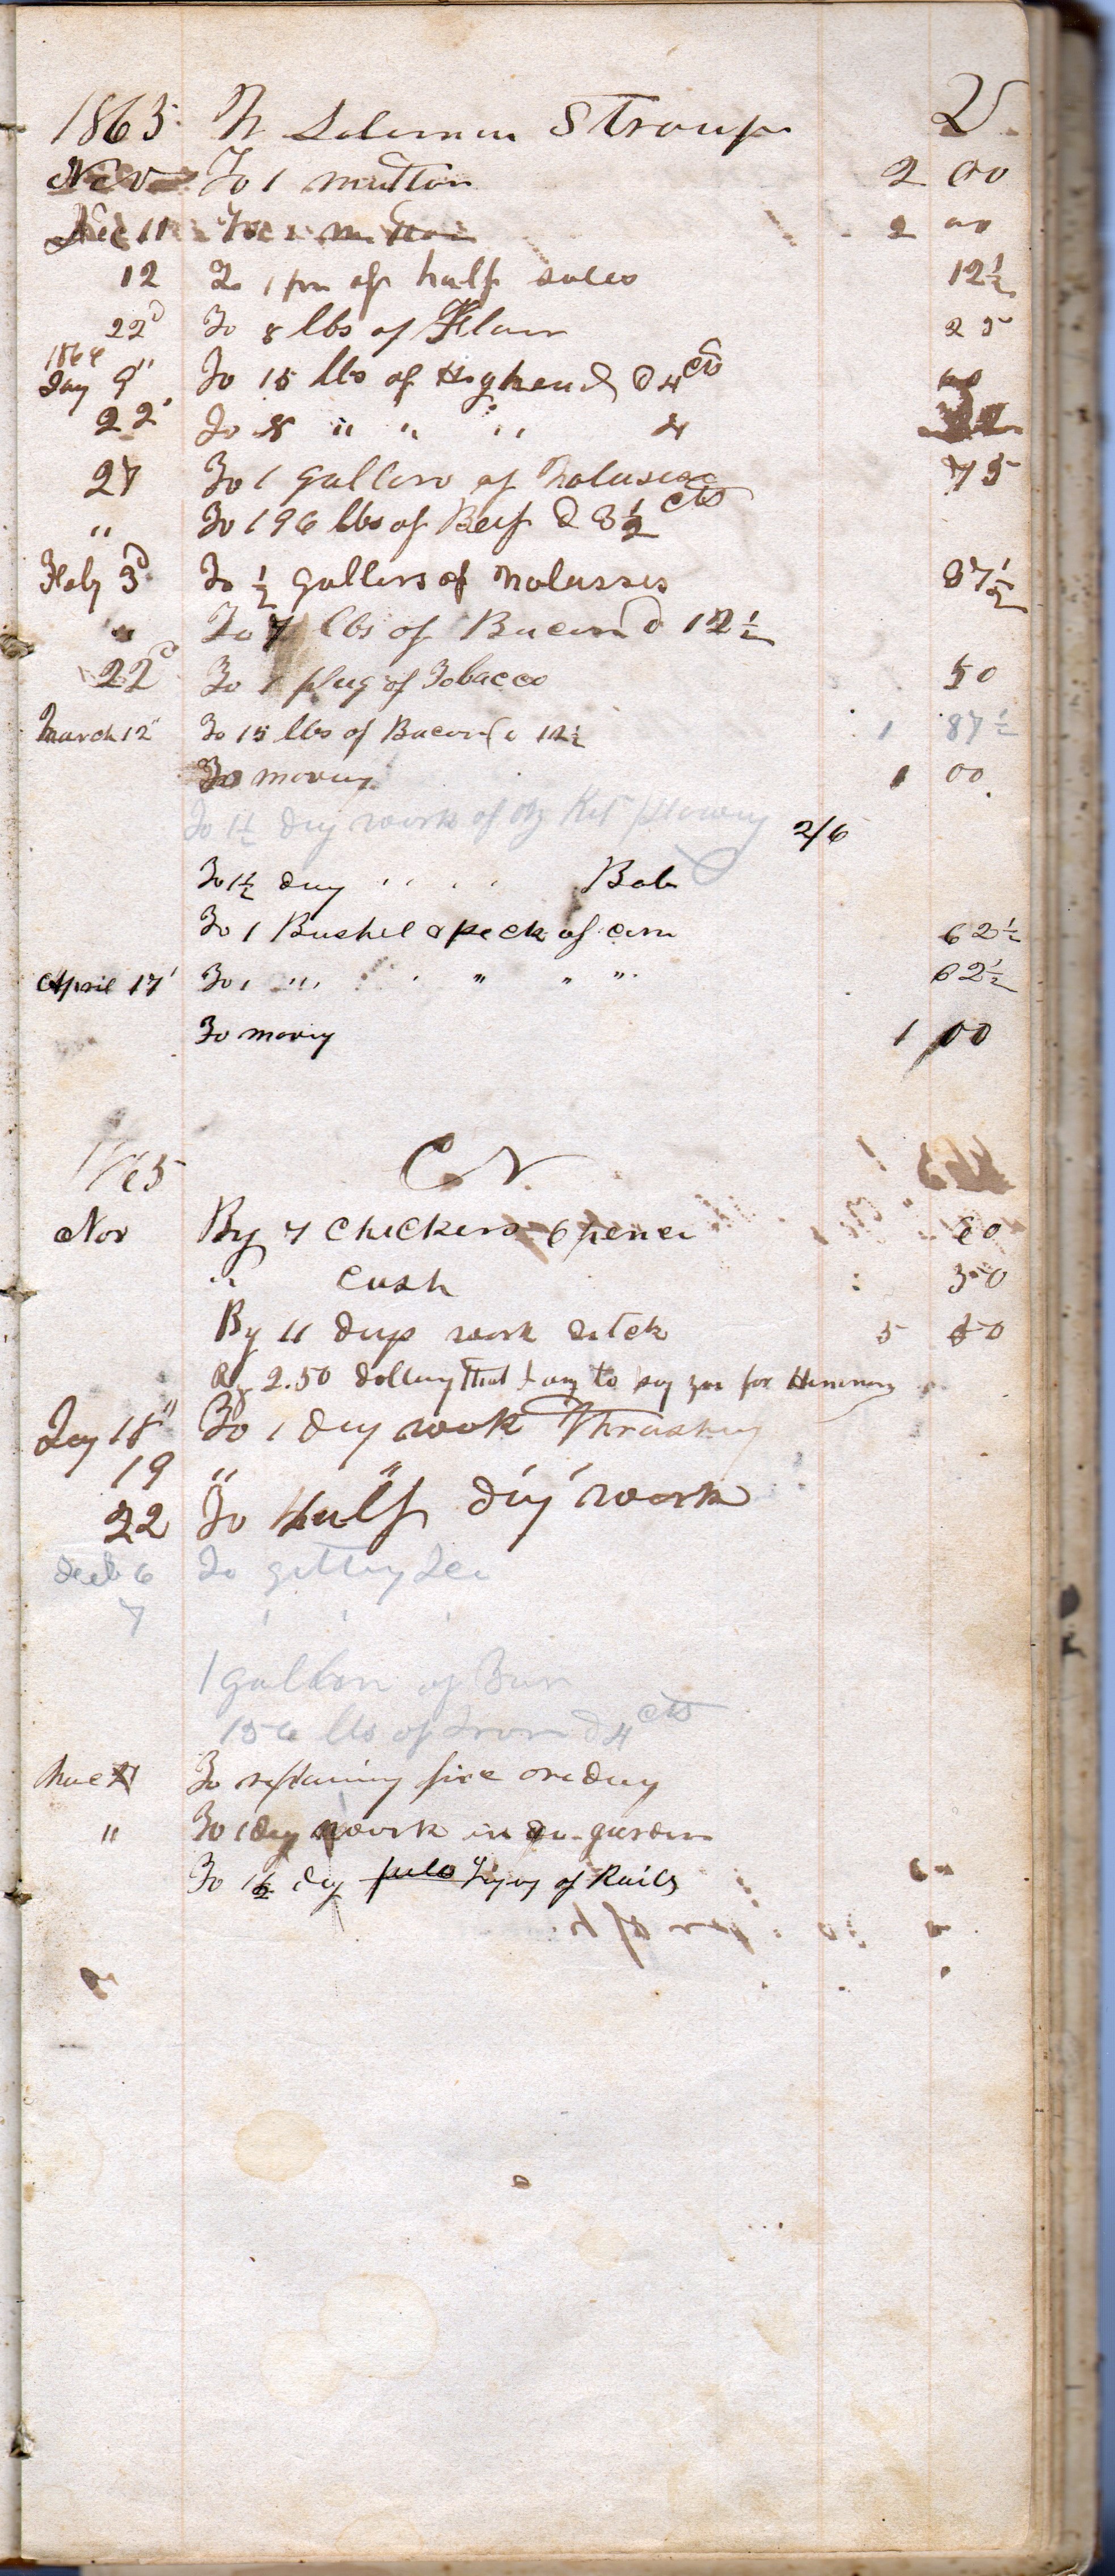 1863 Solomon Stroup
Nov To 1 mutton 2 00
Dec 11 2 00
12 To 1 pr of half soles 12½
22d To 8 lbs of Flour 25
1864
Jay 9" To 15 lbs of @ 4 cts
22 To 8 " " " 4
27 To 1 gallon of Molasses 75
" To 196 lbs of Beef @ 3½ cts
Feby 3d To ½ gallons of Molasses 37½
" To 7 lbs of Bacon @ 12½
22d To 1 plug of Tobacco 50
March 12" To 15 lbs of Bacon @ 12½ 1 87½
To money 1 00
To 1½ day work of my Kit plowing 2/6
To 1½ day " " " " Bob
To 1 Bushel & peck of corn 62½
April 17 To 1 " " " " " 62½
To mony 1 00
1863 Cr.
Nov By 7 chickens 6 pence 60
" cash 50
By 11 days work 5 50
By 2.50 dollars that I am to pay you for
Jay 18" To 1 day work Thrashing
19 " " " "
22 To half day work
Feb 6 To getting Ice
7 ' '
1 gallon of
156 lbs of Iron @ 4 cts
To one day
" To 1 day work in garden
To 1½ day of Rails